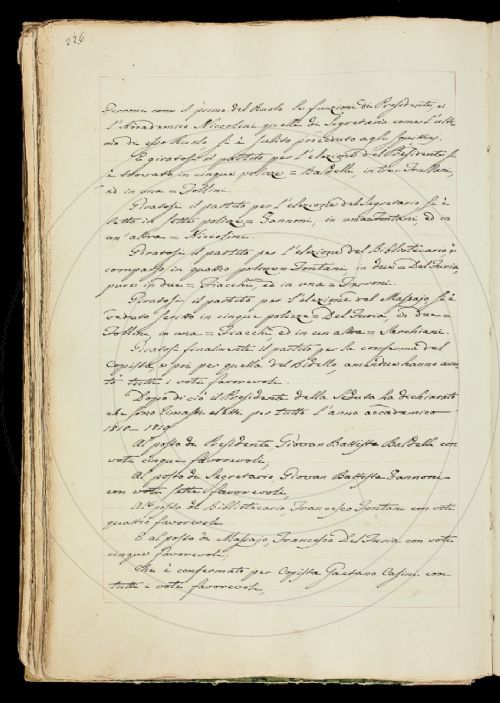 226
Ferroni come il primo del Ruolo le funzioni di Presidente e
l'Accademico Niccolini quelle di Segretario come l'ulti-
mo di esso Ruolo si è subito proceduto agli squittinj.
Giratosi il partito per l'elezione del Presidente si
è trovato in cinque polizze = Baldelli, in tre = Frullani,
ed in una = Follini.
Giratosi il partito per l'elezione del Segretario si è
letto in sette polizze = Zannoni, in una = Fontani, ed in
un'altra = Niccolini.
Giratosi il partito per l'elezione del Bibliotecario è
comparso in quattro polizze = Fontani, in due = Del Furia,
pure in due = Fiacchi, ed in una = Ferroni.
Giratosi il partito per l'elezione del Massajo si è
veduto scritto in cinque polizze = Del Furia, in due =
Follini, in una = Fiacchi, ed in un altra = Sarchiani.
Giratosi finalmente il partito per la conferma del
Copista, e poi per quella del Bidello amendue hanno avu-
to tutti i voti favorevoli.
Dopo di ciò il Presidente della Seduta ha dichiarato
che sono rimasti eletti per tutto l'anno accademico
1818-1819
Al posto di Presidente, Giovan Battista Baldelli con
voti cinque favorevoli,
Al posto di Segretario, Giovan Battista Zannoni
con voti sette favorevoli,
Al posto di Bibliotecario Francesco Fontani con voti
quattro favorevoli
E al posto di Massajo, Francesco Del Furia con voti
cinque favorevoli.
Che è confermato per Copista Gaetano Casini con
tutti i voti favorevoli,